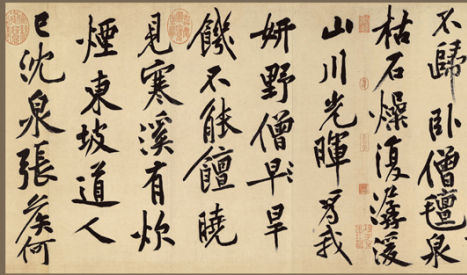 不歸臥僧氈泉
枯石燥復潺湲
山川光暉為我
妍野僧早旱
饑不能饘曉
見寒溪有炊
煙東坡道人
已沈泉張侯何